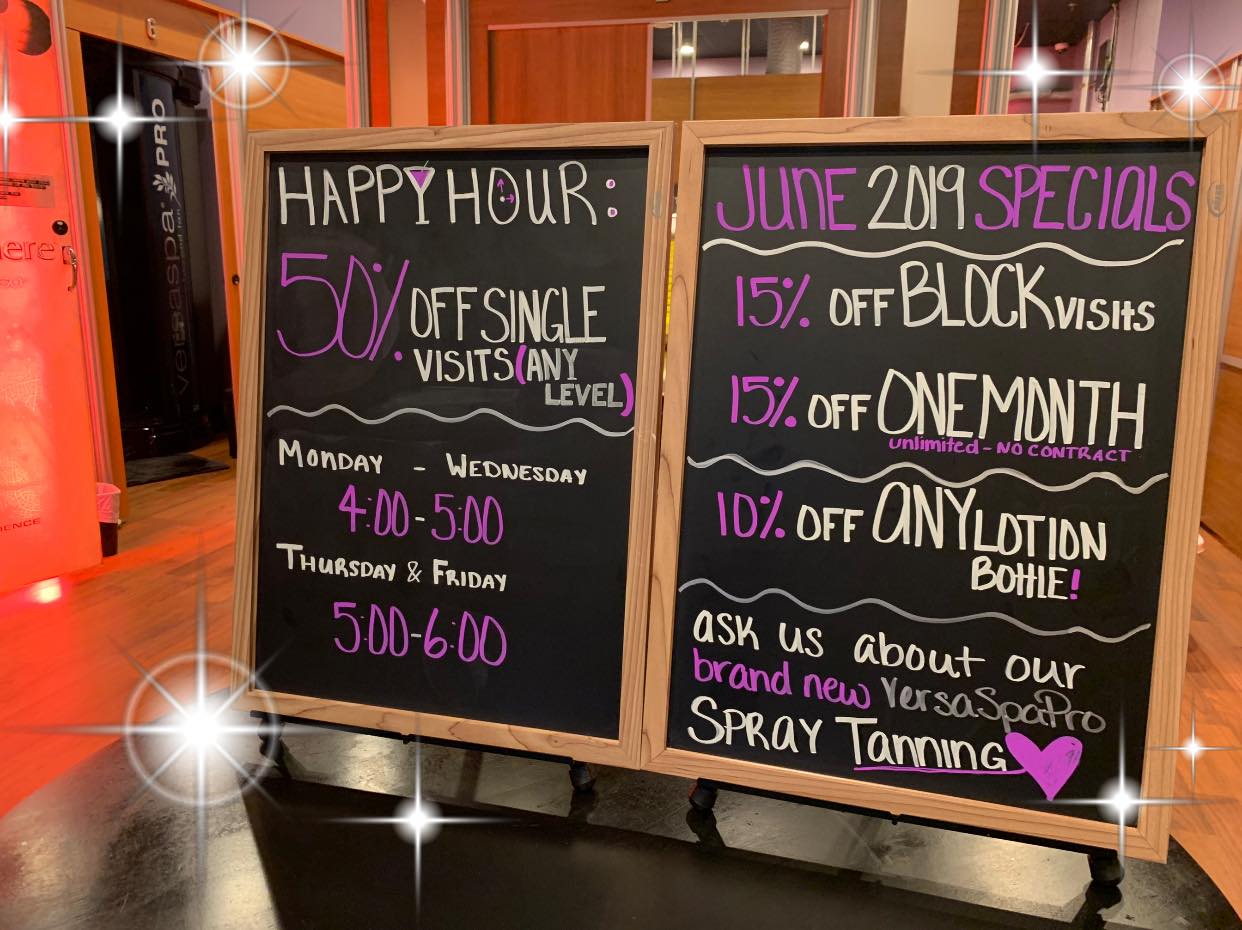 6
versaspa PRO
ere
IENCE
HAPPY HOUR:
50% OFF SINGLE
VISITS (ANY
LEVEL)
MONDAY - WEDNESDAY
4:00-5:00
THURSDAY & FRIDAY
5:00-6:00
JUNE 2019 SPECIALS
15% OFF BLOCK VISITS
15% OFF ONE MONTH
unlimited - NO CONTRACT
10% OFF ANY LOTION
BOTTLE!
ask us about our
brand new VersaSpaPro
SPRAY Tanning